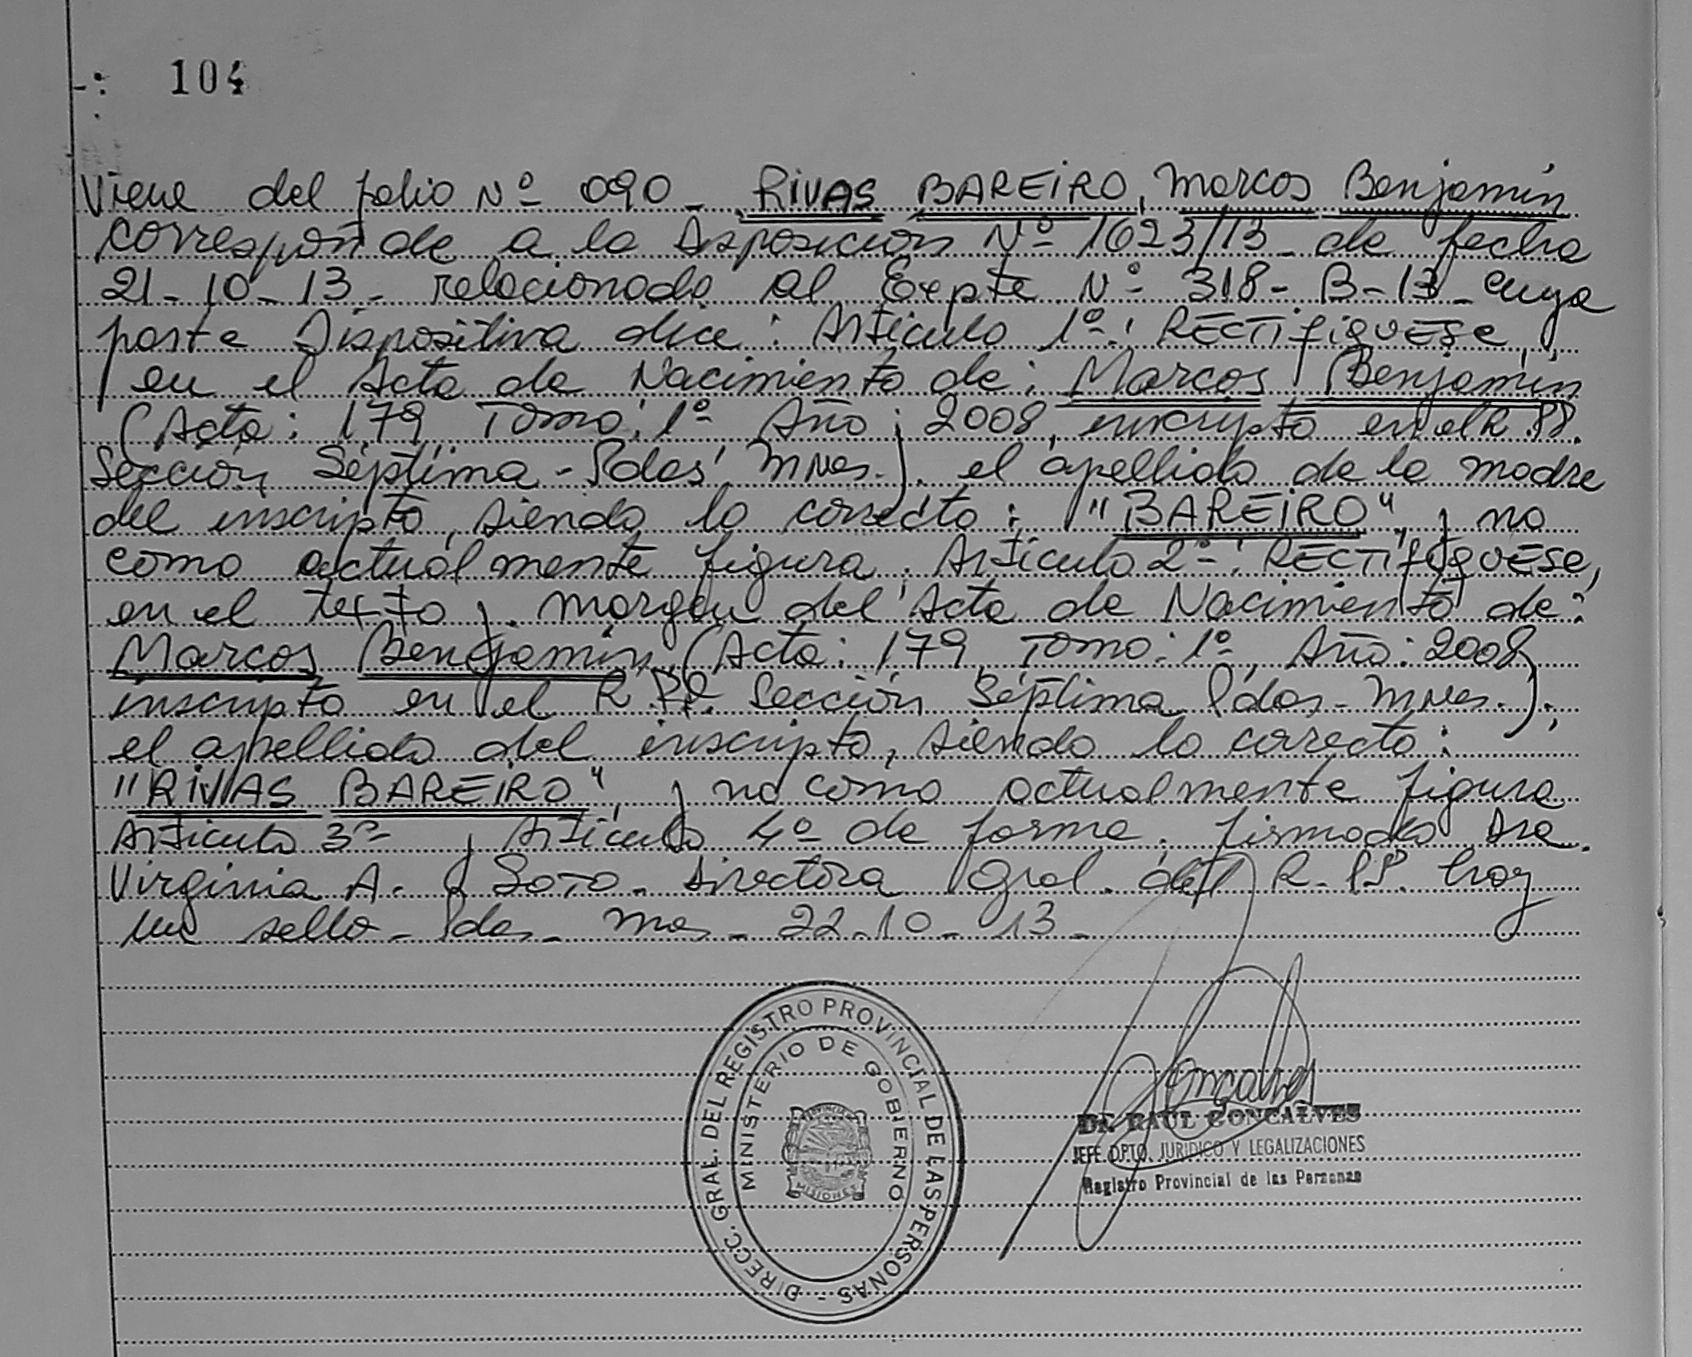 -: 104
Viene del folio Nº 090- RIVAS BAREIRO, Marcos Benjamín
corresponde a la Disposición Nº 1623/13 de fecha
21-10-13- relacionado al Expte Nº 318-B-13- cuya
parte Dispositiva dice: Artículo 1º: RECTIFIQUESE,
en el Acta de Nacimiento de: Marcos Benjamín
(Acta: 179, Tomo: 1º Año: 2008, inscripto en el R.PP.
Sección Séptima - Pdas Mnes.). el apellido de la madre
del inscripto, siendo lo correcto: "BAREIRO", y no
como actualmente figura. Artículo 2º: RECTIFIQUESE,
en el texto y margen del Acta de Nacimiento de:
Marcos Benjamín (Acta: 179, Tomo: 1º, Año: 2008,
inscripto en el R.PP. Sección Séptima Pdas- Mnes.).,
el apellido del inscripto, siendo lo correcto:
"RIVAS BAREIRO", y no como actualmente figura
Artículo 3º y Artículo 4º de forma. firmado Dra.
Virginia A. Soto- Directora Gral. del R.PP. hay
un sello- Pdas- Mnes- 22-10-13-
DIRECC. GRAL. DEL REGISTRO PROVINCIAL DE LAS PERSONAS -
MINISTERIO DE GOBIERNO
PROVINCIA
MISIONES
Dr. RAUL GONCALVES
JEFE DPTO. JURIDICO Y LEGALIZACIONES
Registro Provincial de las Personas